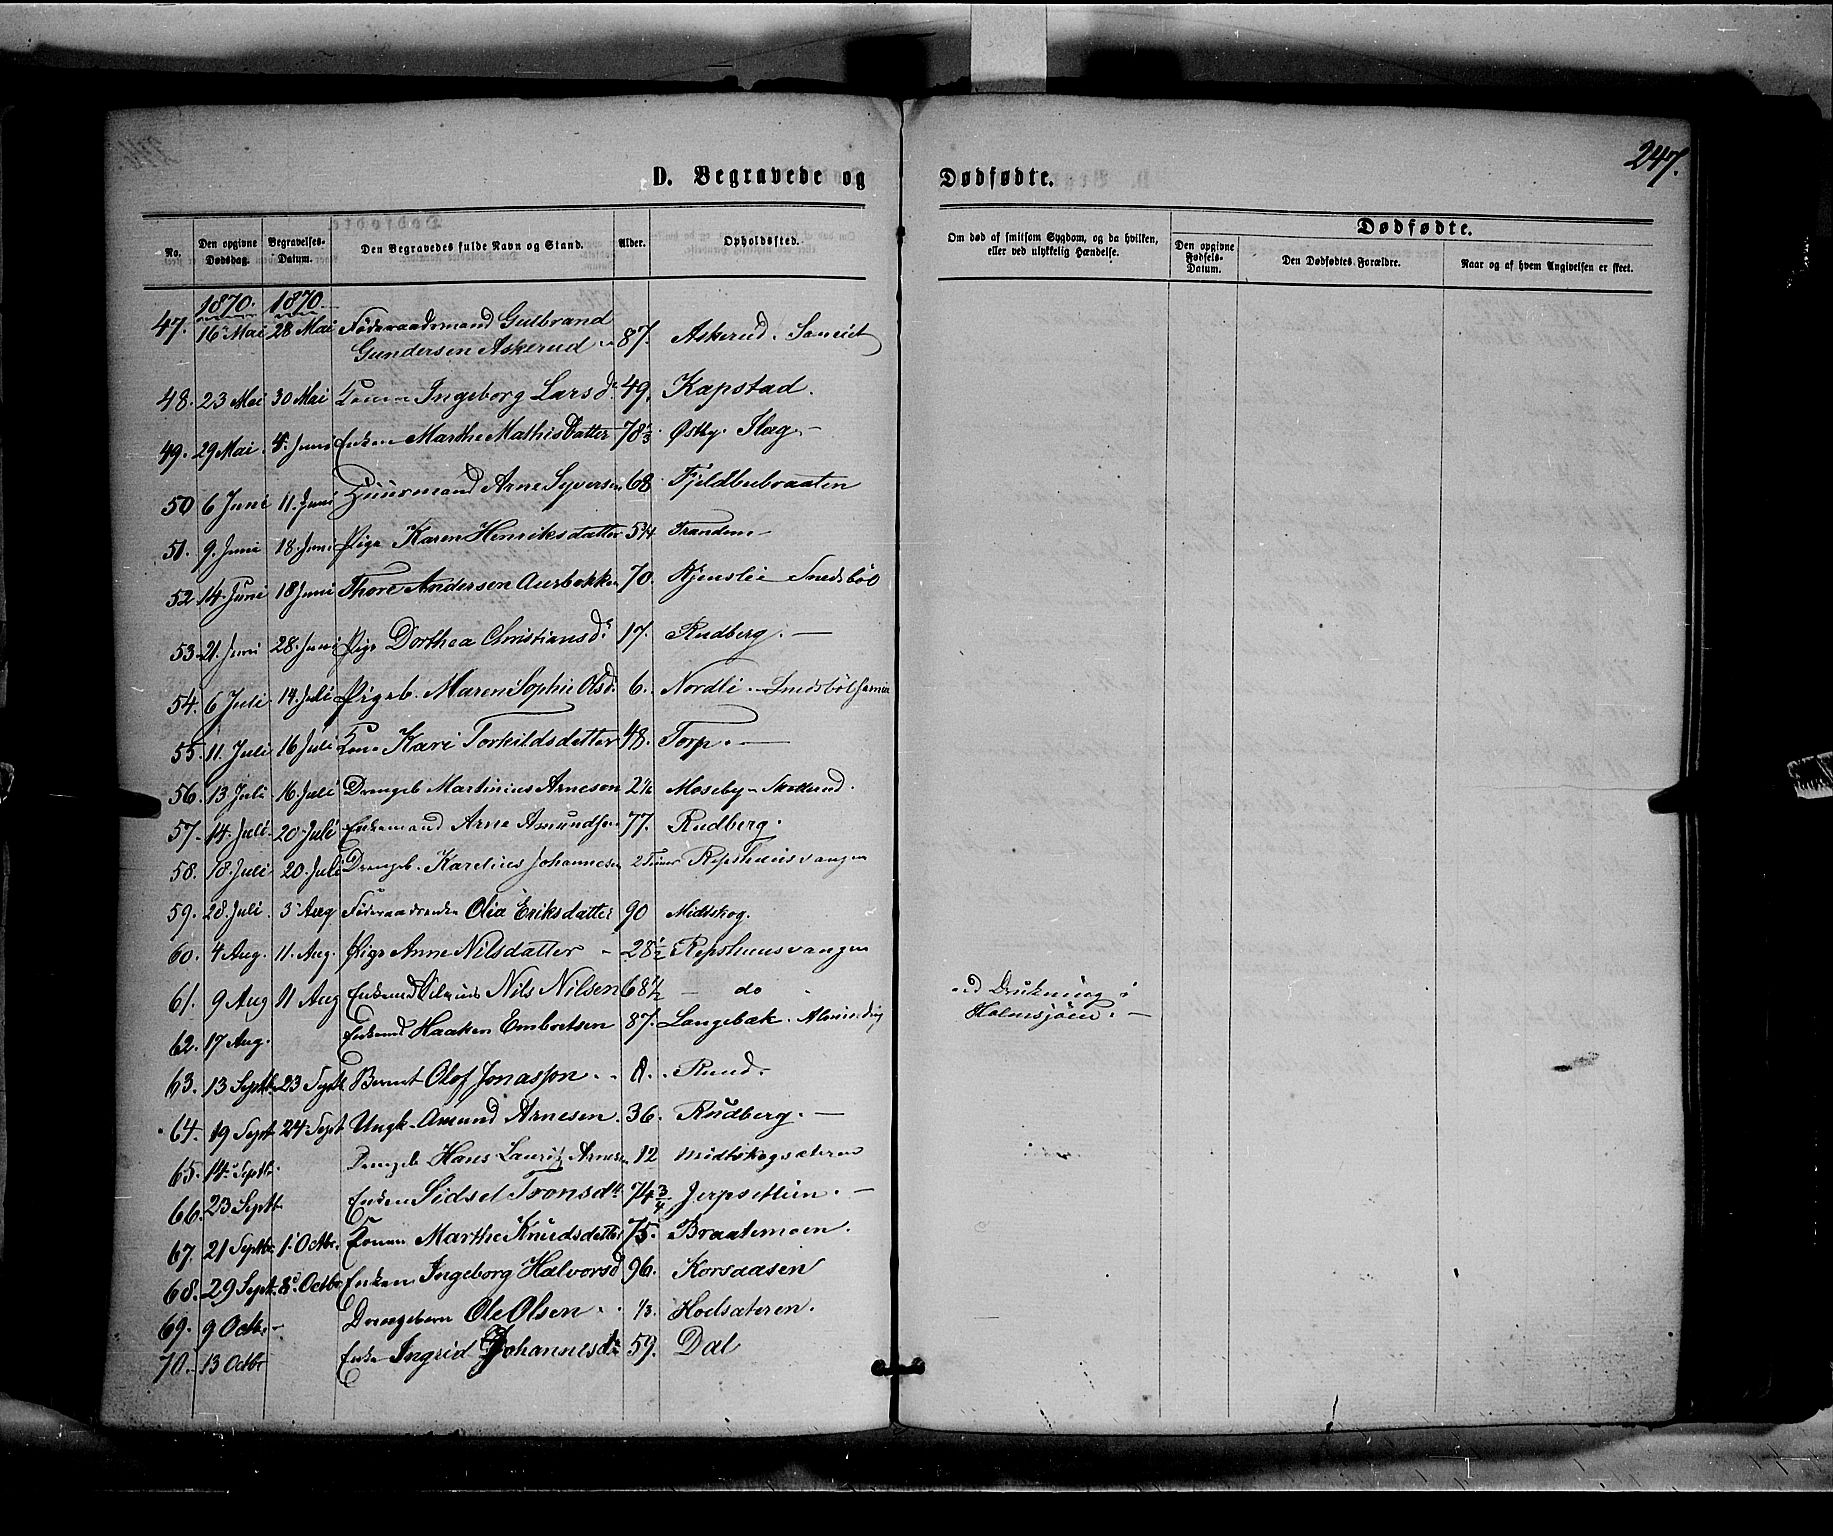 247.
D. Begravede og Dødfødte.
No. Den opgivne Dødsdag. Begravelses-Datum. Den Begravedes fulde Navn og Stand. Alder. Opholdssted. Om død af smitsom Sygdom, og da hvilken, eller ved ulykkelig Hændelse. Dødfødte. Den opgivne Fødsels-Datum. Den Dødfødtes Forældre. Naar og af hvem Angivelsen er skeet.
1870. 1870.
47. 16 Mai 28 Mai Föderaadsmand Gulbrand
Gundersen Askerud 87. Askerud.
48. 23 Mai 30 Mai Konen Ingeborg Larsd. 49. Kapstad.
49. 29 Mai 4. Juni Enken Marthe Mathisdatter 78 1/3 Østby.
50 6 Juni 11. Juni Huusmand Arne Syversen 68 Fjeldbubraaten
51. 9. Juni 18. Juni Pige Karen Henriksdatter 5 1/4 Trandem
52 14. Juni 18 Juni Thore Andersen 70. Snedsböl
53. 21. Juni 28. Juni Pige Dorthea Christiansd. 17. Rudberg.
54. 6 Juli 14. Juli Pigeb. Maren Sophie Olsd. 6. Nordli
55. 11. Juli 16 Juli Kone Kari Torkildsdatter 48. Torp.
56. 13 Juli 16. Juli Drengeb. Martinius Arneson 2 1/2 Moseby
57. 14. Juli 20. Juli Enkemand Arne Amundsen 77. Rudberg.
58. 18. Juli 20. Juli Drengeb. Karelius Johannesen 2 Timer Repshuusvangen
59. 28. Juli. 3 Aug Föderaadsenke Olia Eriksdatter 90 Midtskog.
60. 4 Aug. 11. Aug. Pige Anne Nilsdatter 28 1/2 Repshuusvangen
61. 9 Aug 11 Aug Enkemd Nils Nilsen 68 1/2 do ved Drukning i
Holmsjöen.
62. 17 Aug. Enkemd Haaken Embretsen 87. Langebæk. Alminding
63. 13 Septbr 23 Septbr Bernt Olof Jonasson 8. Ruud.
64. 19 Sept 24 Sept Ungk. Amund Arnesen 36. Rudberg.
65. 14. Septbr. Drengeb Hans Lauritz Arnesen 12 Midtskogsæteren
66. 23 Septbr Enken Sidsel Tronsdtr 74 3/4
67. 21 Septbr 1. Octbr. Konen Marthe Knudsdatter 75. Braatemoen.
68. 29 Septb. 8. Octbr Enken Ingeborg Halvorsd 96. Korsaasen
69. 9 Octbr Drengebarn Ole Olsen 1/3.
70. 13 Octbr Enke Ingrid Johannesdr. 59. Dal